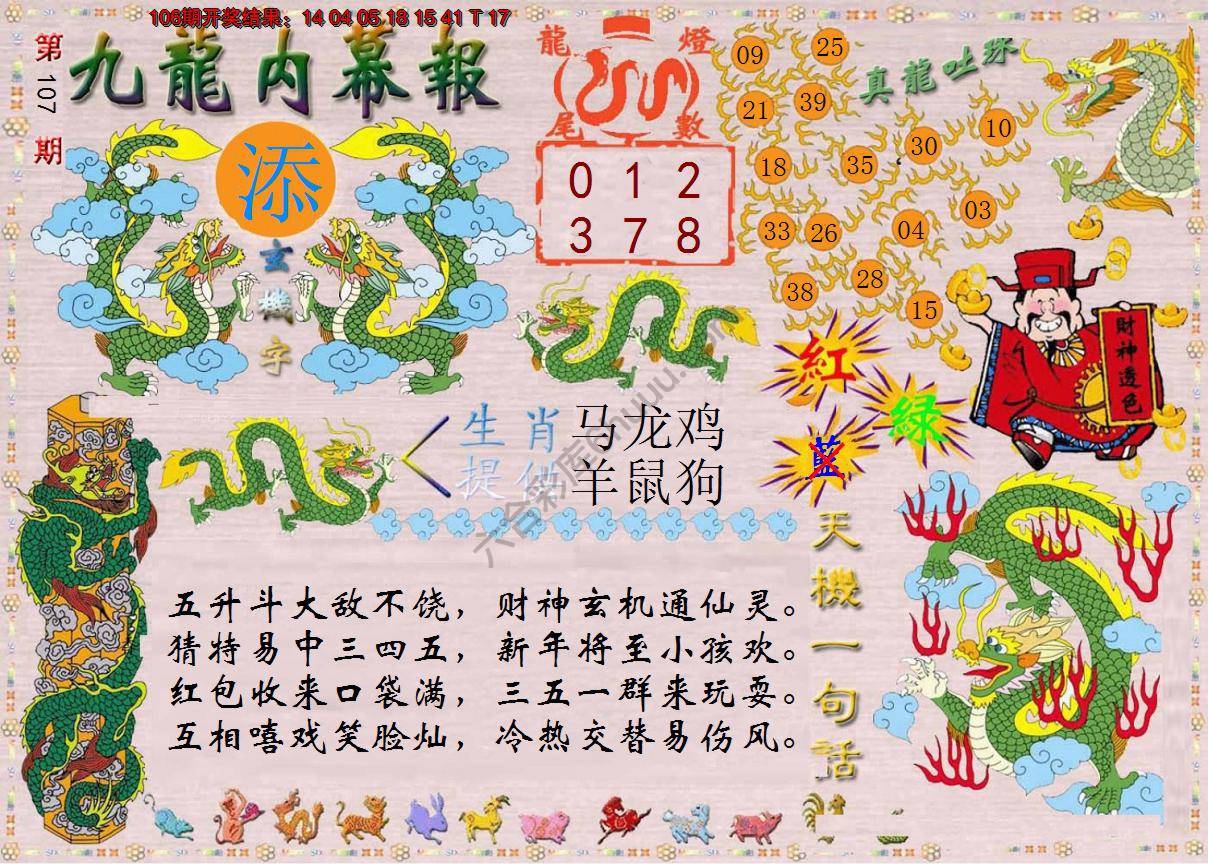 106期开奖结果：14 04 05 18 15 41 T 17
第107期
九龍内幕報
添
玄機字
龍燈
尾數
0 1 2
3 7 8
真龍吐珠
09 25
21 39
18 35 30 10
33 26 04 03
38 28 15
財神透色
紅
綠
藍
生肖 马龙鸡
提供 羊鼠狗
天機一句話
五升斗大敌不饶，财神玄机通仙灵。
猜特易中三四五，新年将至小孩欢。
红包收来口袋满，三五一群来玩耍。
互相嘻戏笑脸灿，冷热交替易伤风。